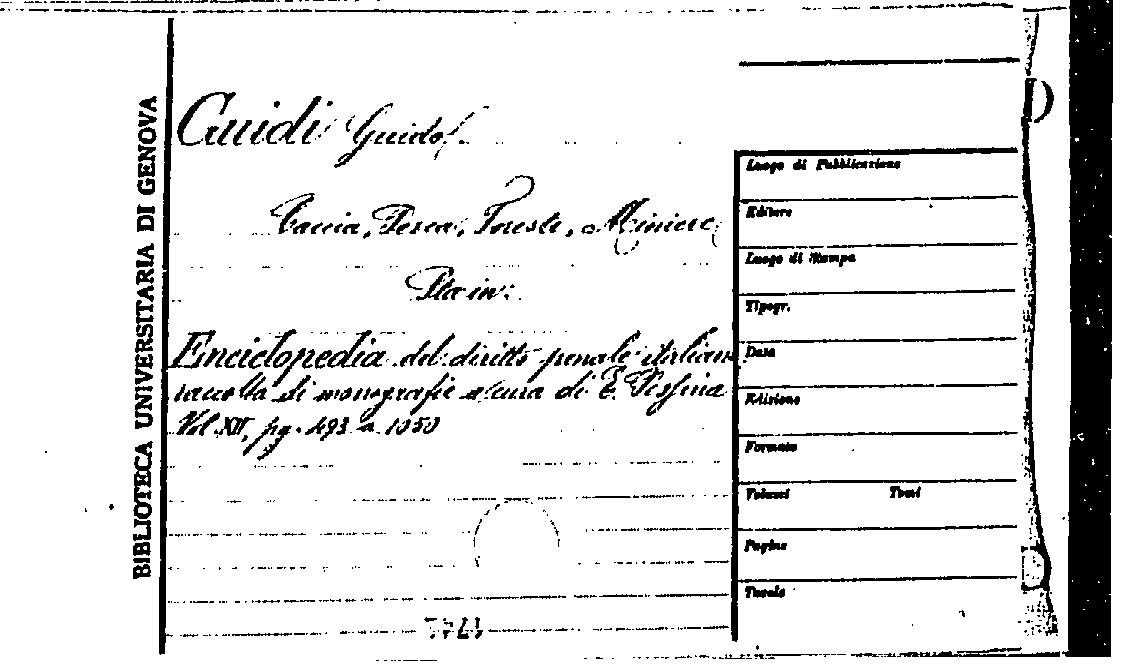 BIBLIOTECA UNIVERSITARIA DI GENOVA
Guidi Guido.
Caccia, Pesca, Foreste, Miniere
Sta in:
Enciclopedia del diritto penale italiano
raccolta di monografie a cura di E. Pessina
Vol. XII, pg. 493 a 1050
Luogo di Pubblicazione
Editore
Luogo di Stampa
Tipogr.
Data
Edizione
Formato
Volumi Tomi
Pagine
Tavole